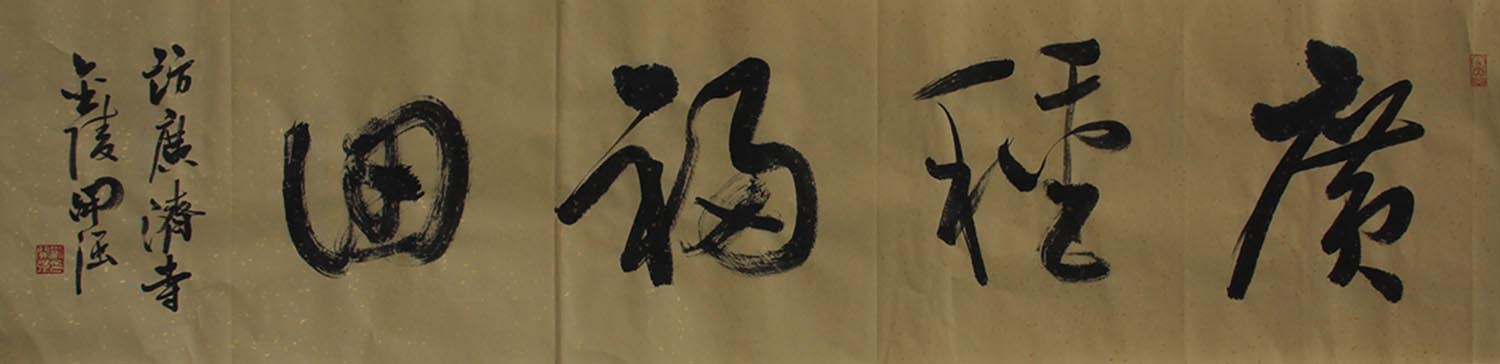 廣種福田
訪廣濟寺
金陵